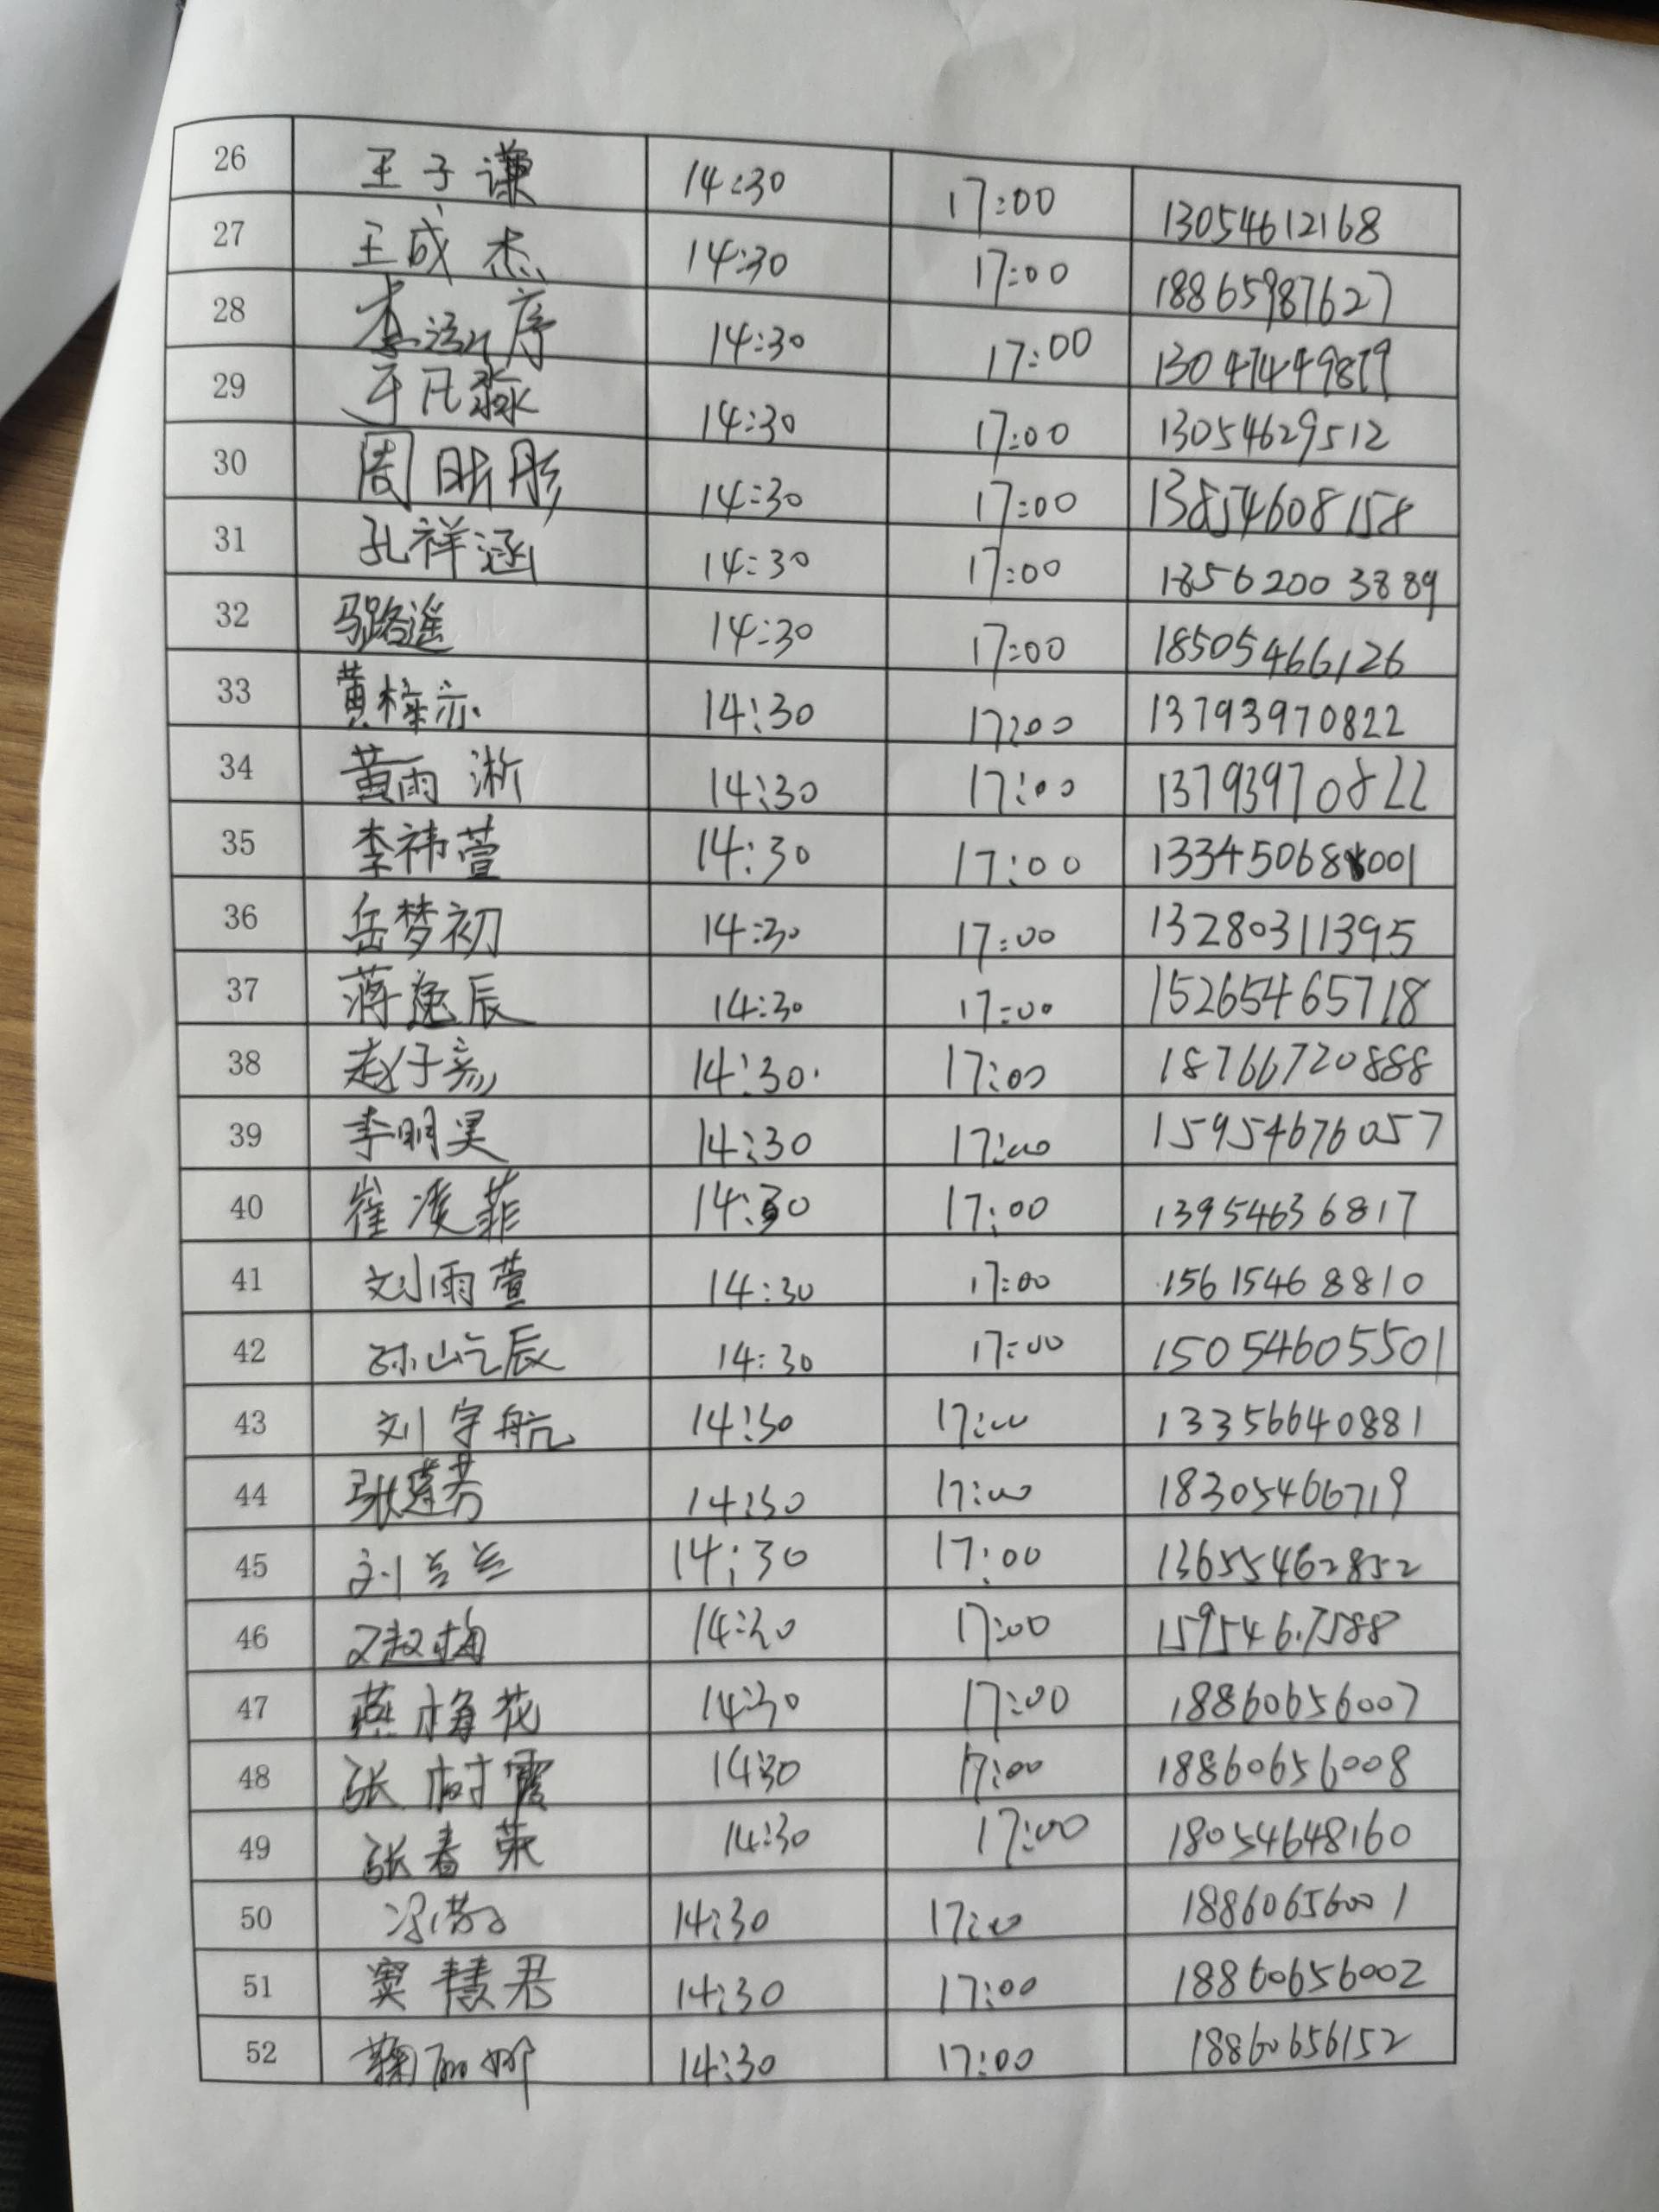 26 王子谦 14:30 17:00 13054612168
27 王成杰 14:30 17:00 18865987627
28 李 序 14:30 17:00
29 于凡淼 14:30 17:00 13054629512
30 周昕彤 14:30 17:00 13854608158
31 孔祥涵 14:30 17:00 18562003889
32 马路遥 14:30 17:00 18505466126
33 黄梓亦 14:30 17:00 13793970822
34 黄雨淅 14:30 17:00 13793970822
35 李祎萱 14:30 17:00
36 岳梦初 14:30 17:00 13280311395
37 蒋逸辰 14:30 17:00 15265465718
38 赵子彦 14:30 17:00 18766720888
39 李明昊 14:30 17:00 15954676057
40 崔凌菲 14:30 17:00 13954636817
41 刘雨萱 14:30 17:00 15615468810
42 孙屹辰 14:30 17:00 15054605501
43 刘宇航 14:30 17:00 13356640881
44 张莲芳 14:30 17:00 18305466719
45 刘兰兰 14:30 17:00 13655462852
46 14:30 17:00
47 燕梅花 14:30 17:00 18860656007
48 张树霞 14:30 17:00 18860656008
49 张春荣 14:30 17:00 18054648160
50 14:30 17:00 18860656001
51 窦慧君 14:30 17:00 18860656002
52 鞠丽娜 14:30 17:00 18860656152